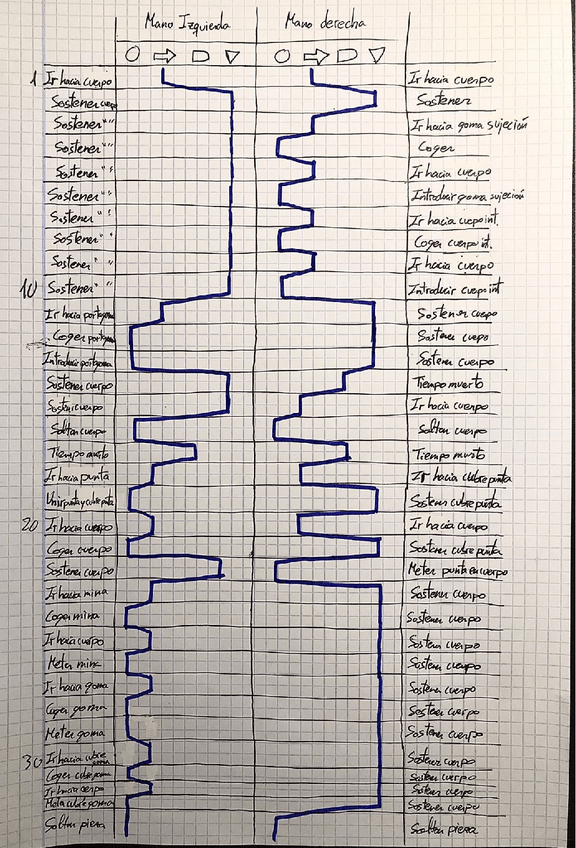 Mano Izquierda Mano derecha
1 Ir hacia cuerpo Ir hacia cuerpo
Sostener cuerpo Sostener
Sostener " " Ir hacia goma sujeción
Sostener " " Coger
Sostener " " Ir hacia cuerpo
Sostener " " Introducir goma sujeción
Sostener " " Ir hacia cuerpo int.
Sostener " " Coger cuerpo int.
Sostener " " Ir hacia cuerpo
10 Sostener " " Introducir cuerpo int
Ir hacia portagoma Sostener cuerpo
Coger portagoma Sostener cuerpo
Introducir portagoma Sostener cuerpo
Sostener cuerpo Tiempo muerto
Sostener cuerpo Ir hacia cuerpo
Soltar cuerpo Soltar cuerpo
Tiempo muerto Tiempo muerto
Ir hacia punta Ir hacia cubrepunta
Unir punta y cubrepunta Sostener cubrepunta
20 Ir hacia cuerpo Ir hacia cuerpo
Coger cuerpo Sostener cubrepunta
Sostener cuerpo Meter punta en cuerpo
Ir hacia mina Sostener cuerpo
Coger mina Sostener cuerpo
Ir hacia cuerpo Sostener cuerpo
Meter mina Sostener cuerpo
Ir hacia goma Sostener cuerpo
Coger goma Sostener cuerpo
Meter goma Sostener cuerpo
30 Ir hacia cubregoma Sostener cuerpo
Coger cubregoma Sostener cuerpo
Ir hacia cuerpo Sostener cuerpo
Meter cubregoma Sostener cuerpo
Soltar pieza Soltar pieza